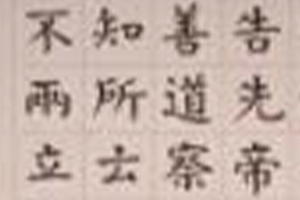 告先帝
善道察
知所云
不兩立